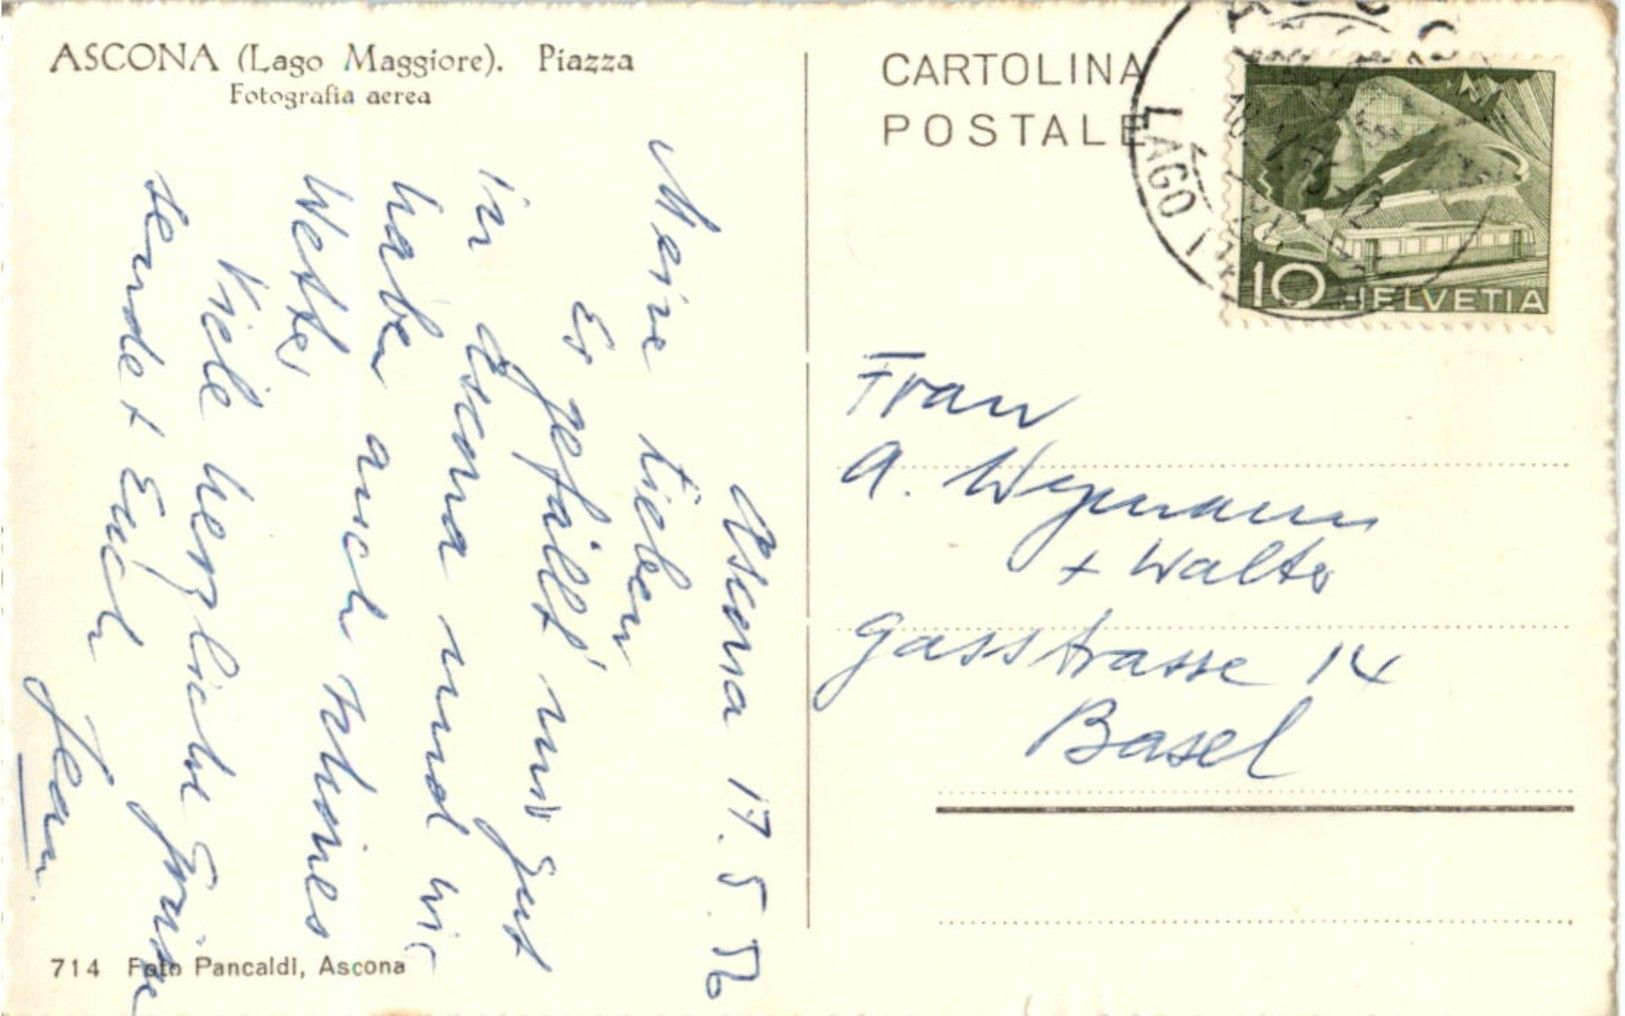 ASCONA (Lago Maggiore). Piazza
Fotografia aerea
CARTOLINA
POSTALE
LAGO
10 HELVETIA
Ascona 17. 5. 56
Meine Lieben
Es gefällt mir gut
in Ascona und wir
haben auch schönes
Wetter
Viele herzliche Grüsse
sendet Euch
Jean
Frau
A. Wymann
+ Walter
Gasstrasse 14
Basel
714 Foto Pancaldi, Ascona